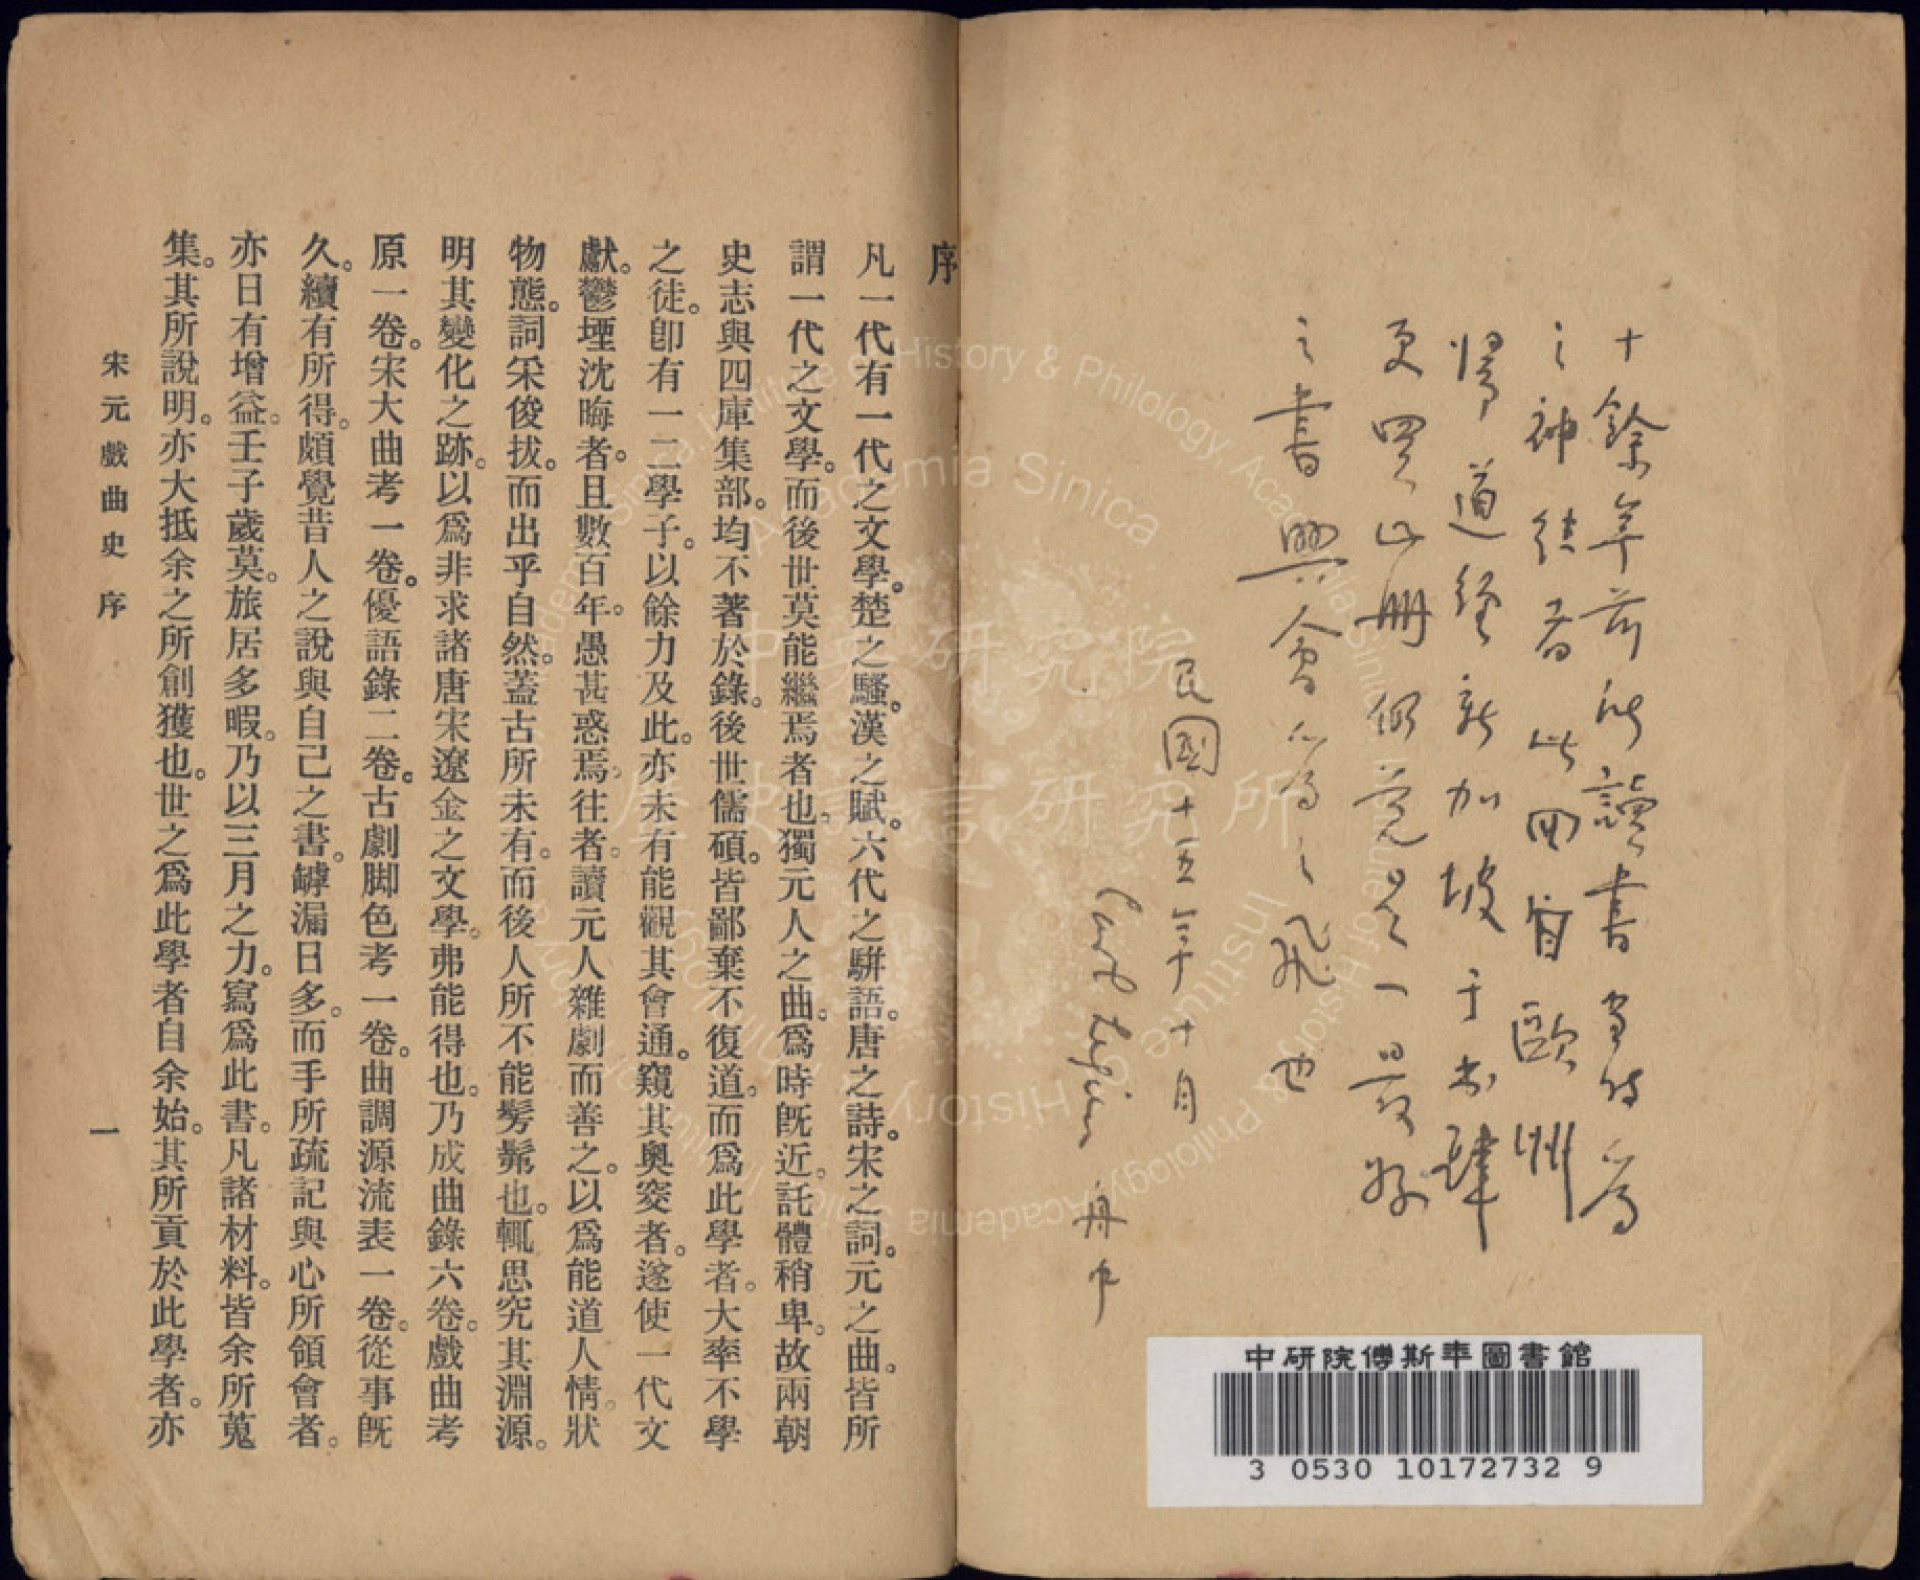 十餘年前所讀書當時為
之神往者此回自歐洲
歸道經新加坡于書肆
更買此册仍覺是一最好
之書興會為之飛也
民國十五年十月
Cart Legien 舟中
中研院傅斯年圖書館
3 0530 10172732 9
序
凡一代有一代之文學。楚之騷。漢之賦。六代之駢語。唐之詩。宋之詞。元之曲。皆所
謂一代之文學。而後世莫能繼焉者也。獨元人之曲。爲時旣近。託體稍卑。故兩朝
史志與四庫集部。均不著於錄。後世儒碩。皆鄙棄不復道。而爲此學者。大率不學
之徒。卽有一二學子。以餘力及此。亦未有能觀其會通。窺其奧窔者。遂使一代文
獻。鬱堙沈晦者。且數百年。愚甚惑焉。往者讀元人雜劇而善之。以爲能道人情。狀
物態。詞采俊拔。而出乎自然。蓋古所未有。而後人所不能髣髴也。輒思究其淵源。
明其變化之跡。以爲非求諸唐宋遼金之文學。弗能得也。乃成曲錄六卷。戲曲考
原一卷。宋大曲考一卷。優語錄二卷。古劇脚色考一卷。曲調源流表一卷。從事旣
久。續有所得。頗覺昔人之說與自己之書。罅漏日多。而手所疏記與心所領會者。
亦日有增益。壬子歲莫。旅居多暇。乃以三月之力。寫爲此書。凡諸材料。皆余所蒐
集。其所說明。亦大抵余之所創獲也。世之爲此學者自余始。其所貢於此學者。亦
宋元戲曲史 序
一
中央研究院
歷史語言研究所
Academia Sinica
Institute of History & Philology, Academia Sinica